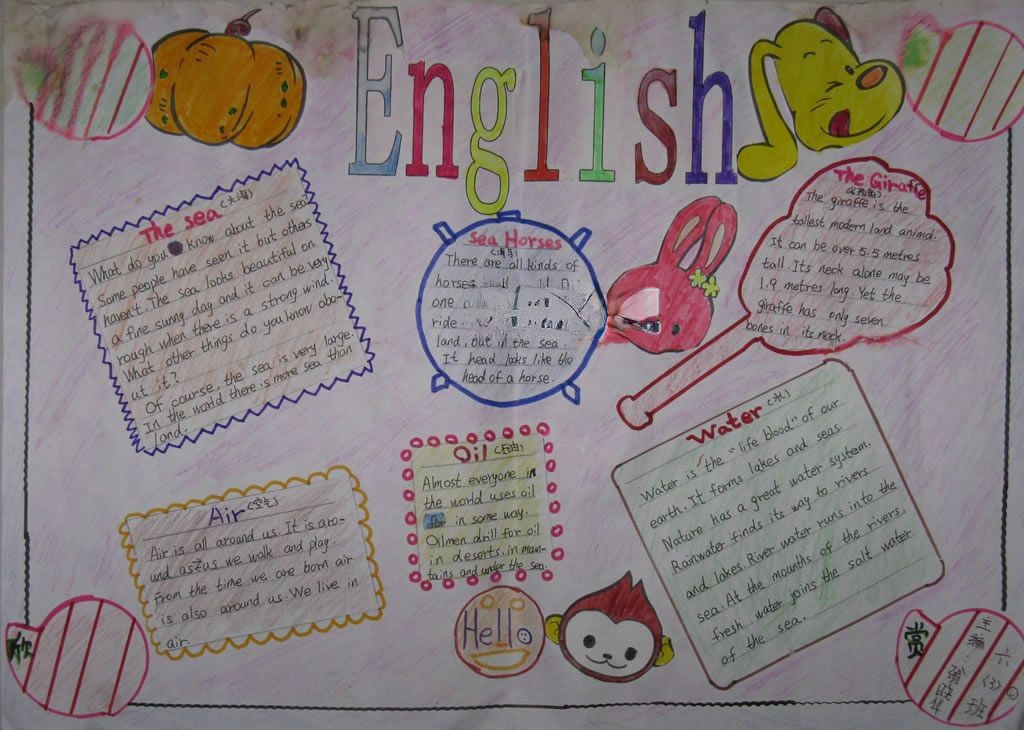 English
The sea (大海)
What do you know about the sea
Some people have seen it but others
haven't. The sea looks beautiful on
a fine sunny day and it can be very
rough when there is a strong wind.
What other things do you know abo-
ut it?
Of course, the sea is very large.
In the world there is more sea than
land.
Sea Horses
(海马)
There are all kinds of
horses
one
ride.
land, but in the sea.
It head looks like the
head of a horse.
The Giraffe
The giraffe is the
tallest modern land animal.
It can be over 5.5 metres
tall. Its neck alone may be
1.9 metres long. Yet the
giraffe has only seven
bones in its neck.
Air (空气)
Air is all around us. It is aro-
und as us we walk and play.
From the time we are born air
is also around us. We live in
air.
Oil (石油)
Almost everyone in
the world uses oil
in some way.
Oilmen drill for oil
in deserts, in moun-
tains and under the sea.
Water (水)
Water is the "life blood" of our
earth. It forms lakes and seas
Nature has a great water system.
Rainwater finds its way to rivers
and lakes. River water runs into the
sea. At the mounths of the rivers,
fresh water joins the salt water
of the sea.
Hello
欣
赏
六(3)班